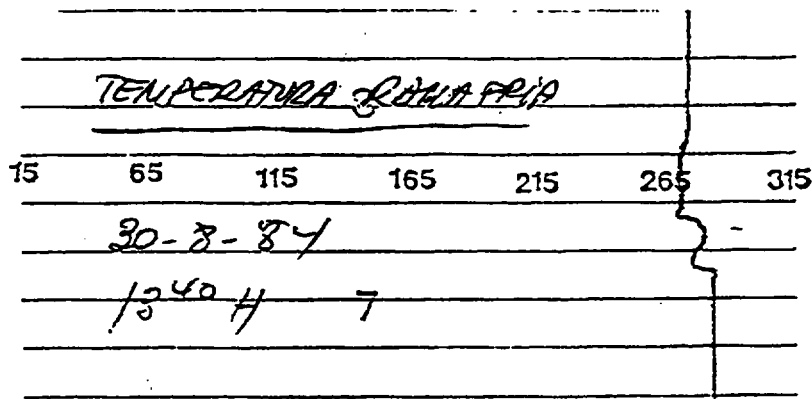 TEMPERATURA RAMA FRIA
15 65 115 165 215 265 315
30-8-84
H